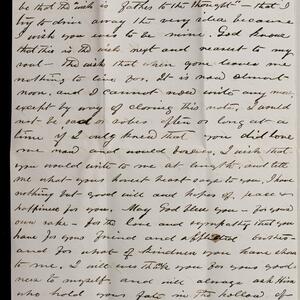 be that the wish is "father to the thought" - that I
try to drive away the very idea because
I wish you ever to be mine. God knows
that this is the wish next and nearest to my
soul - the wish that when gone leaves me
nothing to live for. It is now almost
noon, and I cannot now write any more
except by way of closing this note, I would
not be sad or sober often or long at a
time if I only knew that you did love
me now and would forever. I wish that
you would write to me at length, and tell
me what your honest heart says to you. I have
nothing but good will and hopes of peace &
happiness for you. May God bless you - for your
own sake - for the love and sympathy that you
have for your friend and
and for what of kindness you have shown
to me. I will ever thank you for your good-
ness to myself - and will always ask Him
who holds your fate in the hollow of